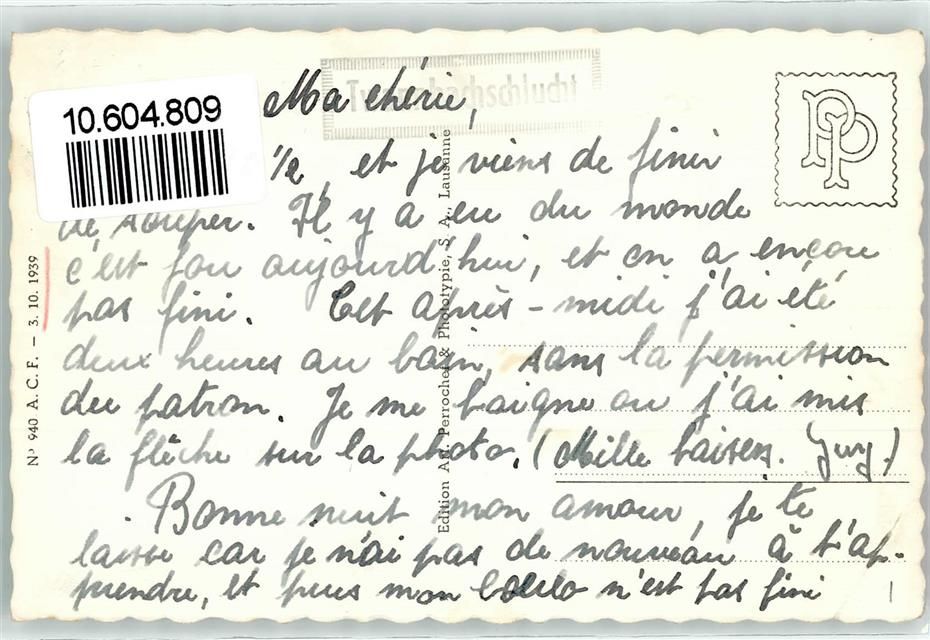 10.604.809
Twannbachschlucht
Ma chérie,
½, et je viens de finir
de souper. Il y a eu du monde
c'est fou aujourd'hui, et on a encore
pas fini. Cet après-midi j'ai été
deux heures au bain, sans la permission
du patron. Je me baigne ou j'ai mis
la flèche sur la photo. (Mille baisers.
Bonne nuit mon amour, je te
laisse car je n'ai pas de nouveau à t'ap-
prendre, et puis mon boulo n'est pas fini
Nº 940 A. C. F. — 3. 10. 1939
Edition Art. Perrochet & Phototypie, S. A., Lausanne
PP